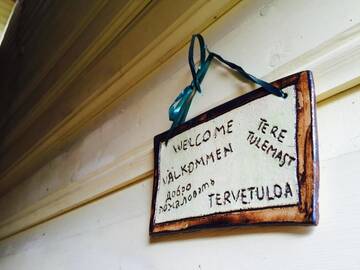 WELCOME
TERE
TULEMAST
VÄLKOMMEN
ДОБРО
пожаловатЬ
TERVETULOA